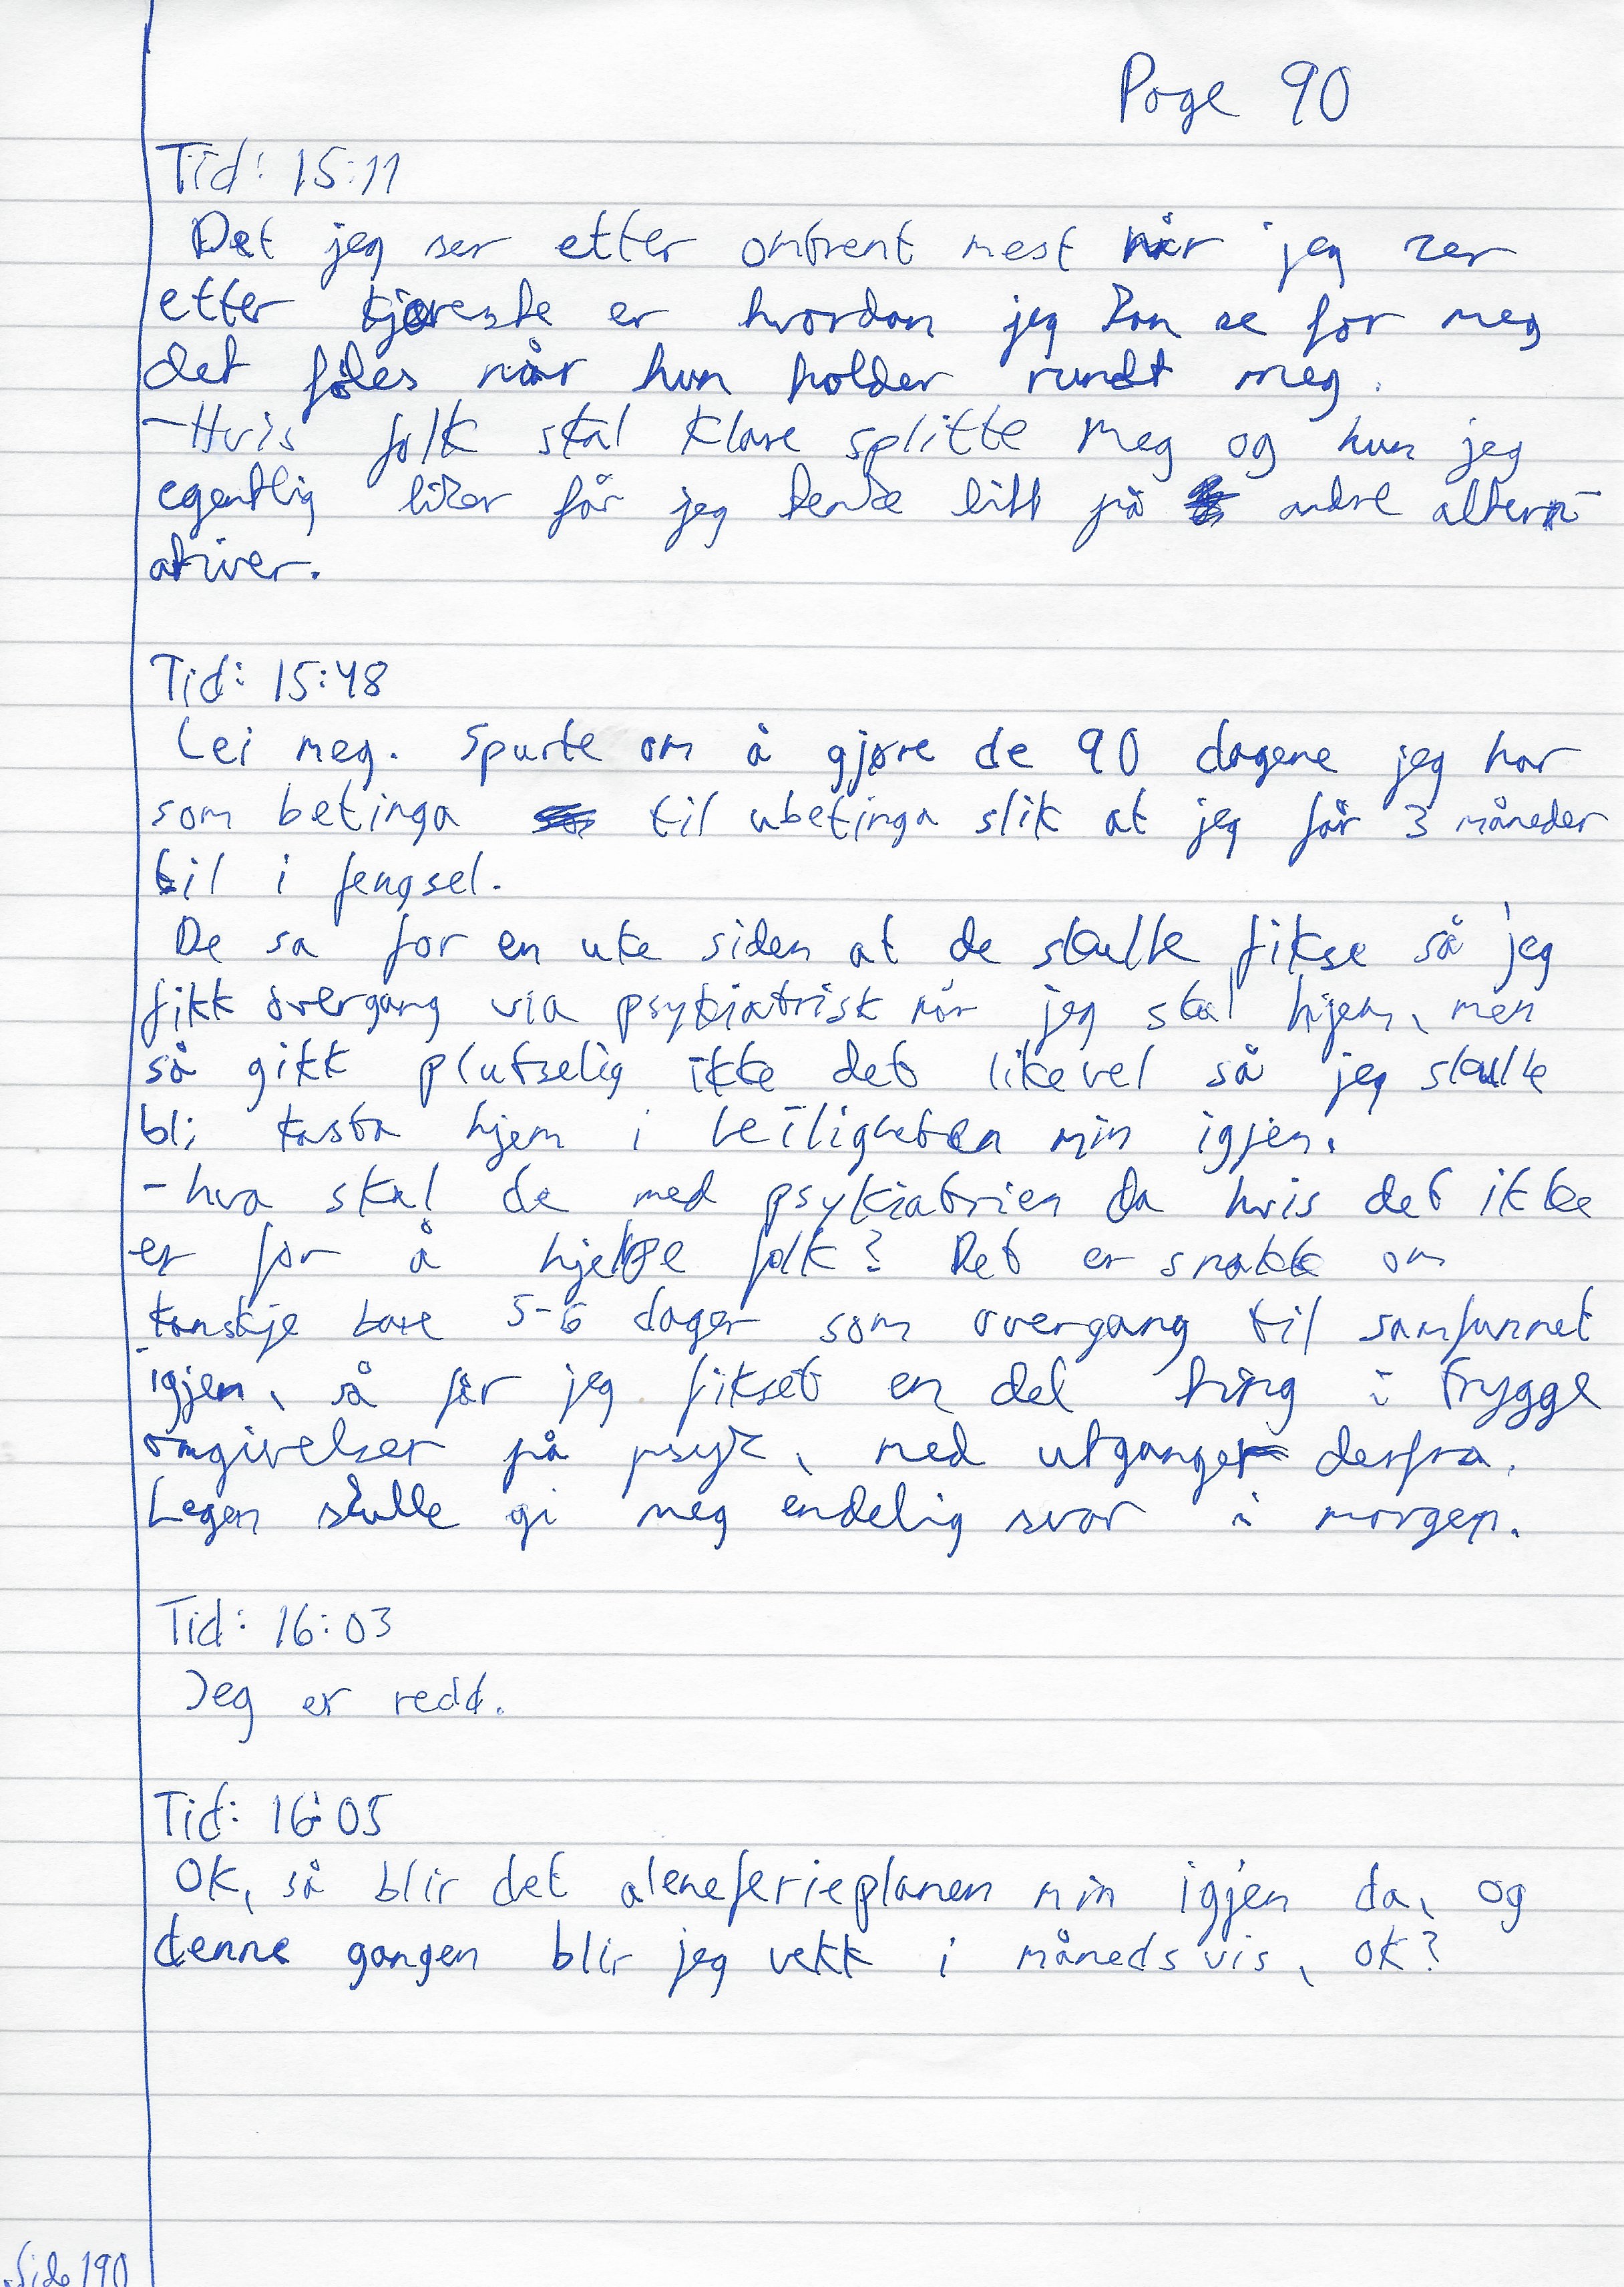 Page 90
Tid: 15:11
Det jeg ser etter omtrent mest når jeg ser
etter kjæreste er hvordan jeg kan se for meg
det føles når hun holder rundt meg.
-Hvis folk skal klare splitte meg og hun jeg
egentlig liker får jeg tenke litt på andre altern-
ativer.
Tid: 15:48
Lei meg. Spurte om å gjøre de 90 dagene jeg har
som betinga til ubetinga slik at jeg får 3 måneder
til i fengsel.
De sa for en uke siden at de skulle fikse så jeg
fikk overgang via psykiatrisk når jeg skal hjem, men
så gikk plutselig ikke det likevel så jeg skulle
bli kasta hjem i leiligheten min igjen.
- hva skal de med psykiatrien da hvis det ikke
er for å hjelpe folk? Det er snakk om
kanskje bare 5-6 dager som overgang til samfunnet
igjen, så får jeg fikset en del ting i trygge
omgivelser på psyk, med utganger derfra.
Legen skulle gi meg endelig svar i morgen.
Tid: 16:03
Jeg er redd.
Tid: 16:05
OK, så blir det aleneferieplanen min igjen da, og
denne gangen blir jeg vekk i månedsvis, ok?
Side 190